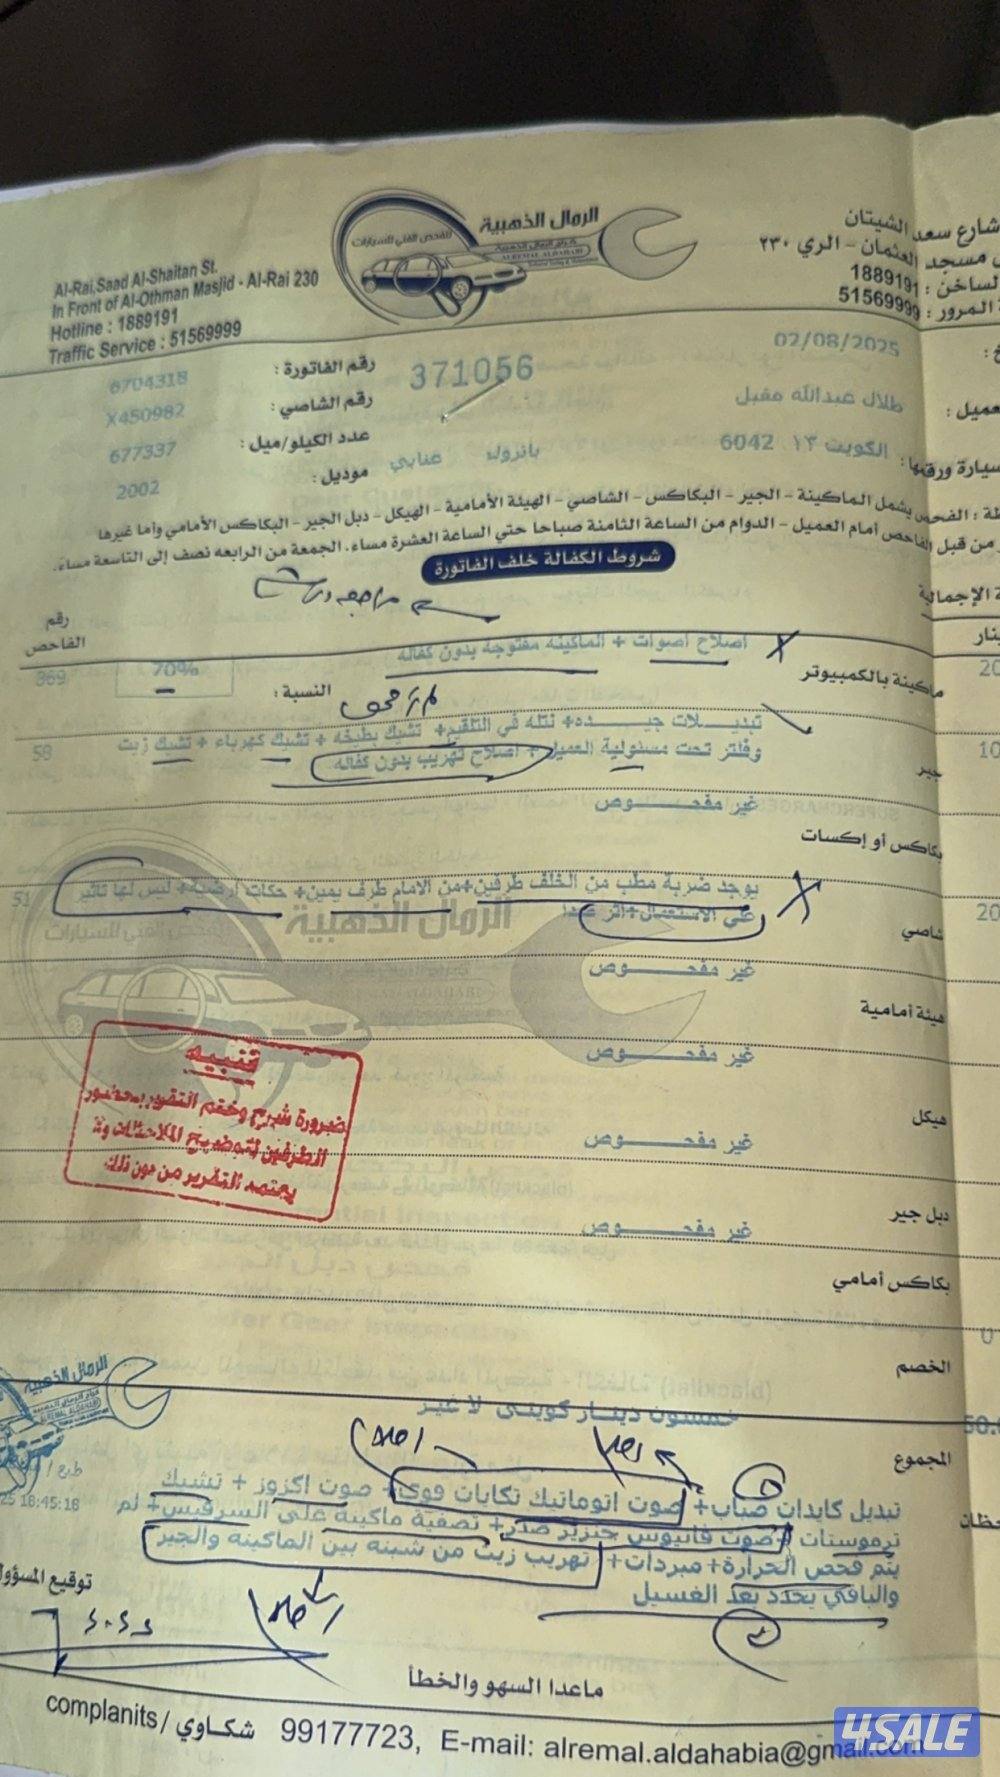 الرمال الذهبية
للفحص الفني للسيارات
ALREMAL ALDAHABI
شارع سعد الشيتان
مسجد العثمان - الري ٢٣٠
الساخن : 1889191
المرور : 51569999
Al-Rai,Saad Al-Shaitan St.
In Front of Al-Othman Masjid - Al-Rai 230
Hotline : 1889191
Traffic Service : 51569999
02/08/2025
371056
رقم الفاتورة : 6704318
طلال عبدالله مقبل
رقم الشاصي : X450982
الكويت ١٣ 6042
عدد الكيلو/ميل : 677337
عنابي
موديل : 2002
الفحص يشمل الماكينة - الجير - البكاكس - الشاصي - الهيئة الأمامية - الهيكل - دبل الجير - البكاكس الأمامي وأما غيرها
من قبل الفاحص أمام العميل - الدوام من الساعة الثامنة صباحا حتي الساعة العشرة مساء. الجمعة من الرابعه نصف إلى التاسعة مساء.
شروط الكفالة خلف الفاتورة
رقم الفاحص
ماكينة بالكمبيوتر
اصلاح اصوات + الماكينه مفتوحة بدون كفاله
النسبة : 70%
369
جير
تبديلات جيده+ نتله في التلقيم+ تشيك بطيخه + تشيك كهرباء + تشيك زيت
وفلتر تحت مسئولية العميل + اصلاح تهريب بدون كفاله
58
بكاكس أو إكسات
غير مفحوص
شاصي
يوجد ضربة مطب من الخلف طرفين+من الامام طرف يمين+ حكات ارضية+ ليس لها تاثير
علي الاستعمال+اثر صدا
51
هيئة أمامية
غير مفحوص
هيكل
غير مفحوص
دبل جير
غير مفحوص
بكاكس أمامي
غير مفحوص
تنبيه
ضرورة شرح وختم التقرير بحضور
الطرفين لتوضيح الملاحظات ولا
يعتمد التقرير من دون ذلك
الخصم
خمسون دينار كويتى لا غير
المجموع
تبديل كايدات صباب+ صوت اتوماتيك تكايات قوي+ صوت اكزوز + تشيك
ترموستات +صوت فانيوس جنزير صدر+ تصفية ماكينة على السرفيس+ لم
يتم فحص الحرارة+ مبردات+ تهريب زيت من شبنه بين الماكينه والجير
والباقي يحدد بعد الغسيل
18:45:18
توقيع المسؤول
ماعدا السهو والخطأ
complanits/ شكاوي 99177723, E-mail: alremal.aldahabia@gmail.com
4SALE